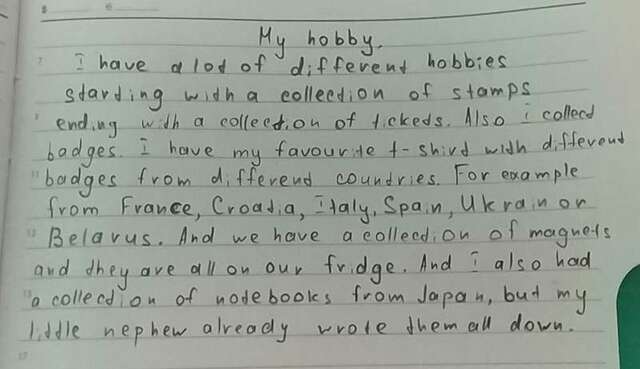 My hobby.
I have a lot of different hobbies
starting with a collection of stamps
ending with a collection of tickets. Also i collect
badges. I have my favourite t-shirt with different
badges from different countries. For example
from France, Croatia, Italy, Spain, Ukrain or
Belarus. And we have a collection of magnets
and they are all on our fridge. And I also had
a collection of notebooks from Japan, but my
little nephew already wrote them all down.